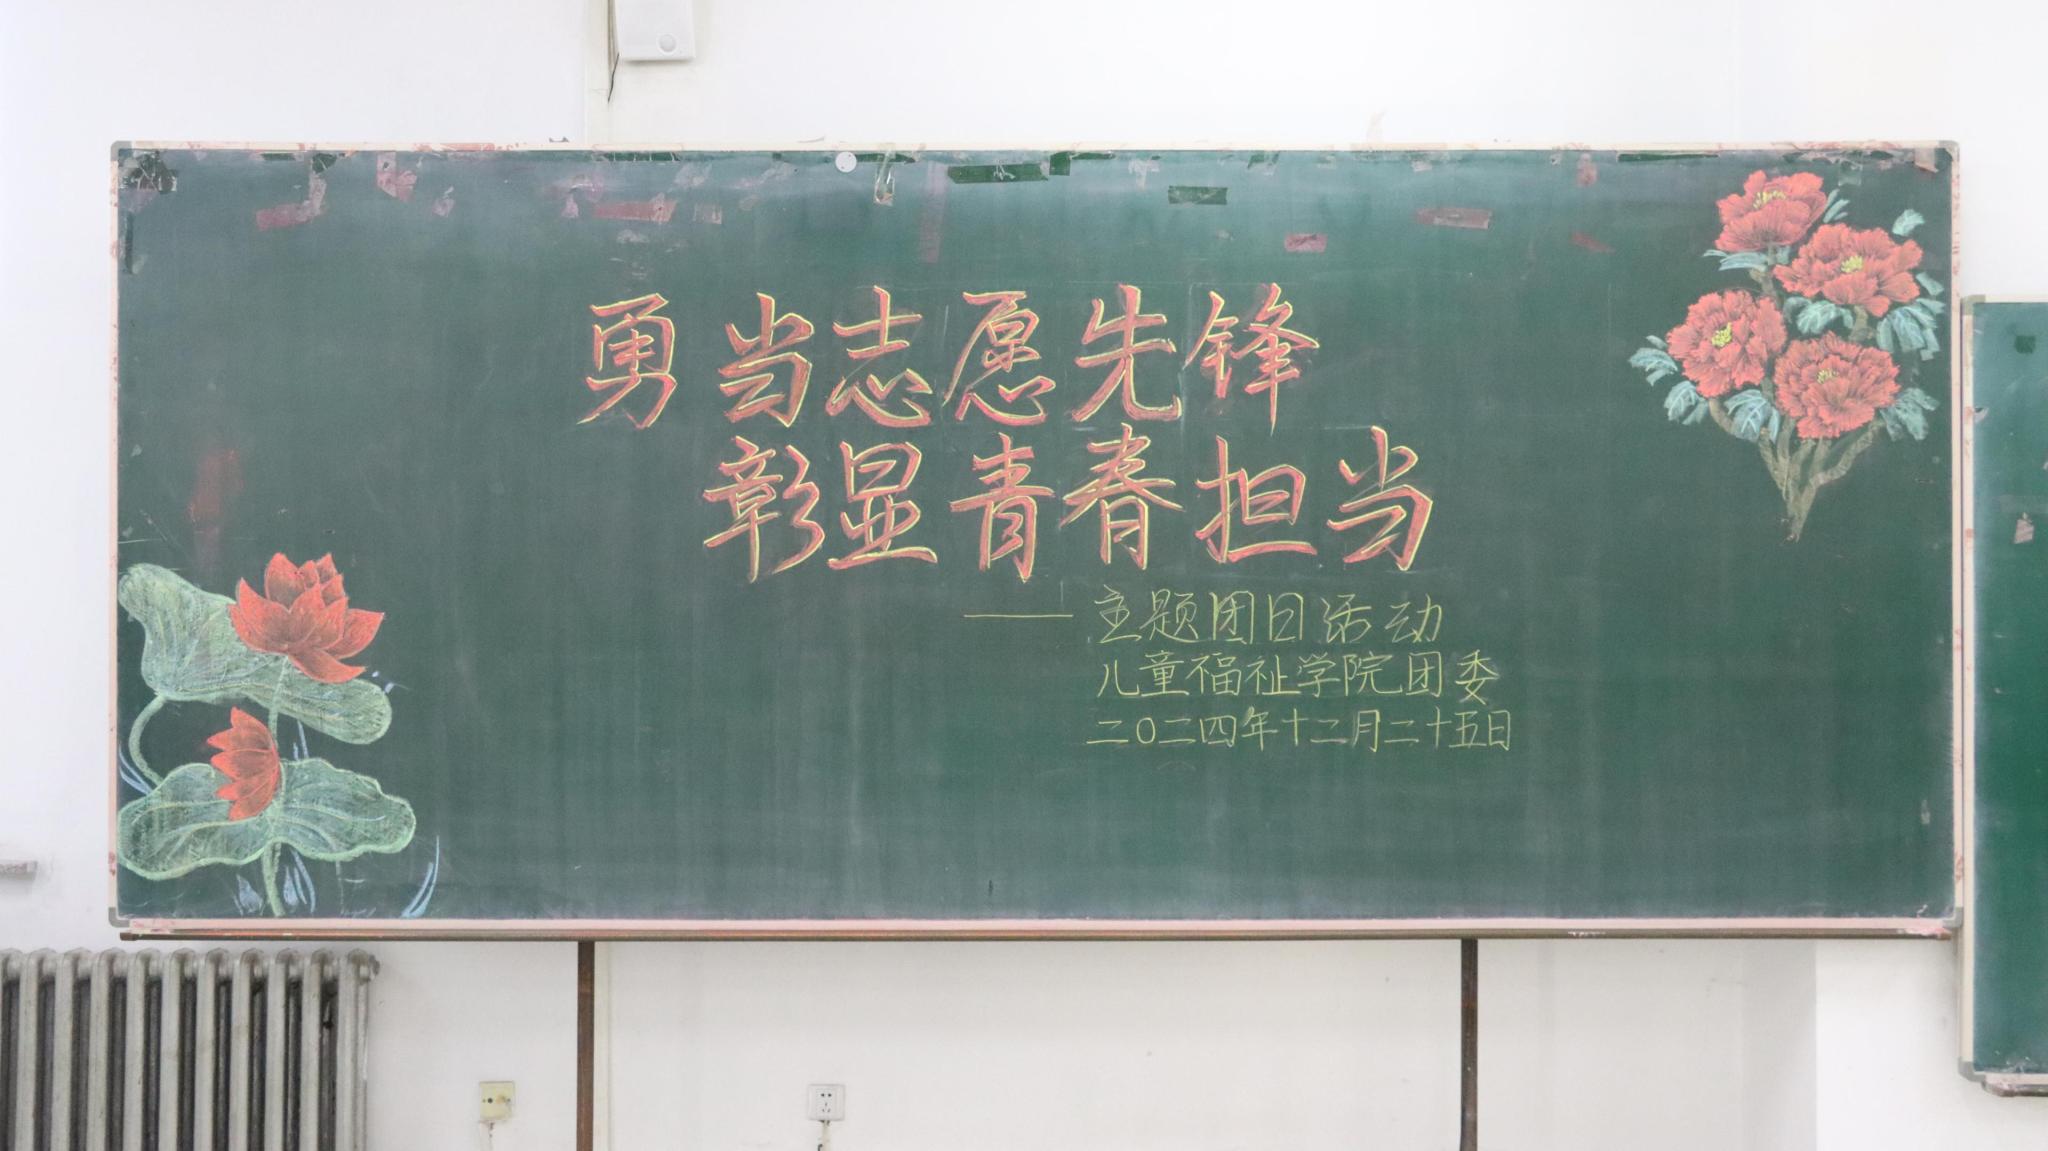 勇当志愿先锋
彰显青春担当
——主题团日活动
儿童福祉学院团委
二〇二四年十二月二十五日